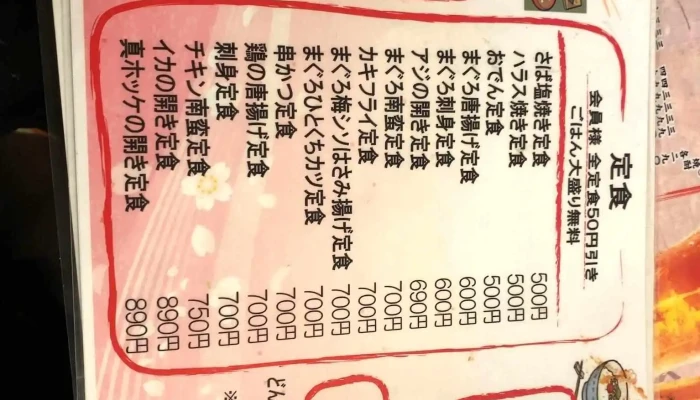 定食
会員様 全定食50円引き
ごはん大盛り無料
さば塩焼き定食 500円
ハラス焼き定食 500円
おでん定食 500円
まぐろ唐揚げ定食 600円
まぐろ刺身定食 600円
アジの開き定食 690円
まぐろ南蛮定食 700円
カキフライ定食 700円
まぐろ梅シソはさみ揚げ定食 700円
まぐろひとくちカツ定食 700円
串かつ定食 700円
鶏の唐揚げ定食 700円
刺身定食 700円
チキン南蛮定食 750円
イカの開き定食 890円
真ホッケの開き定食 890円
どん
※